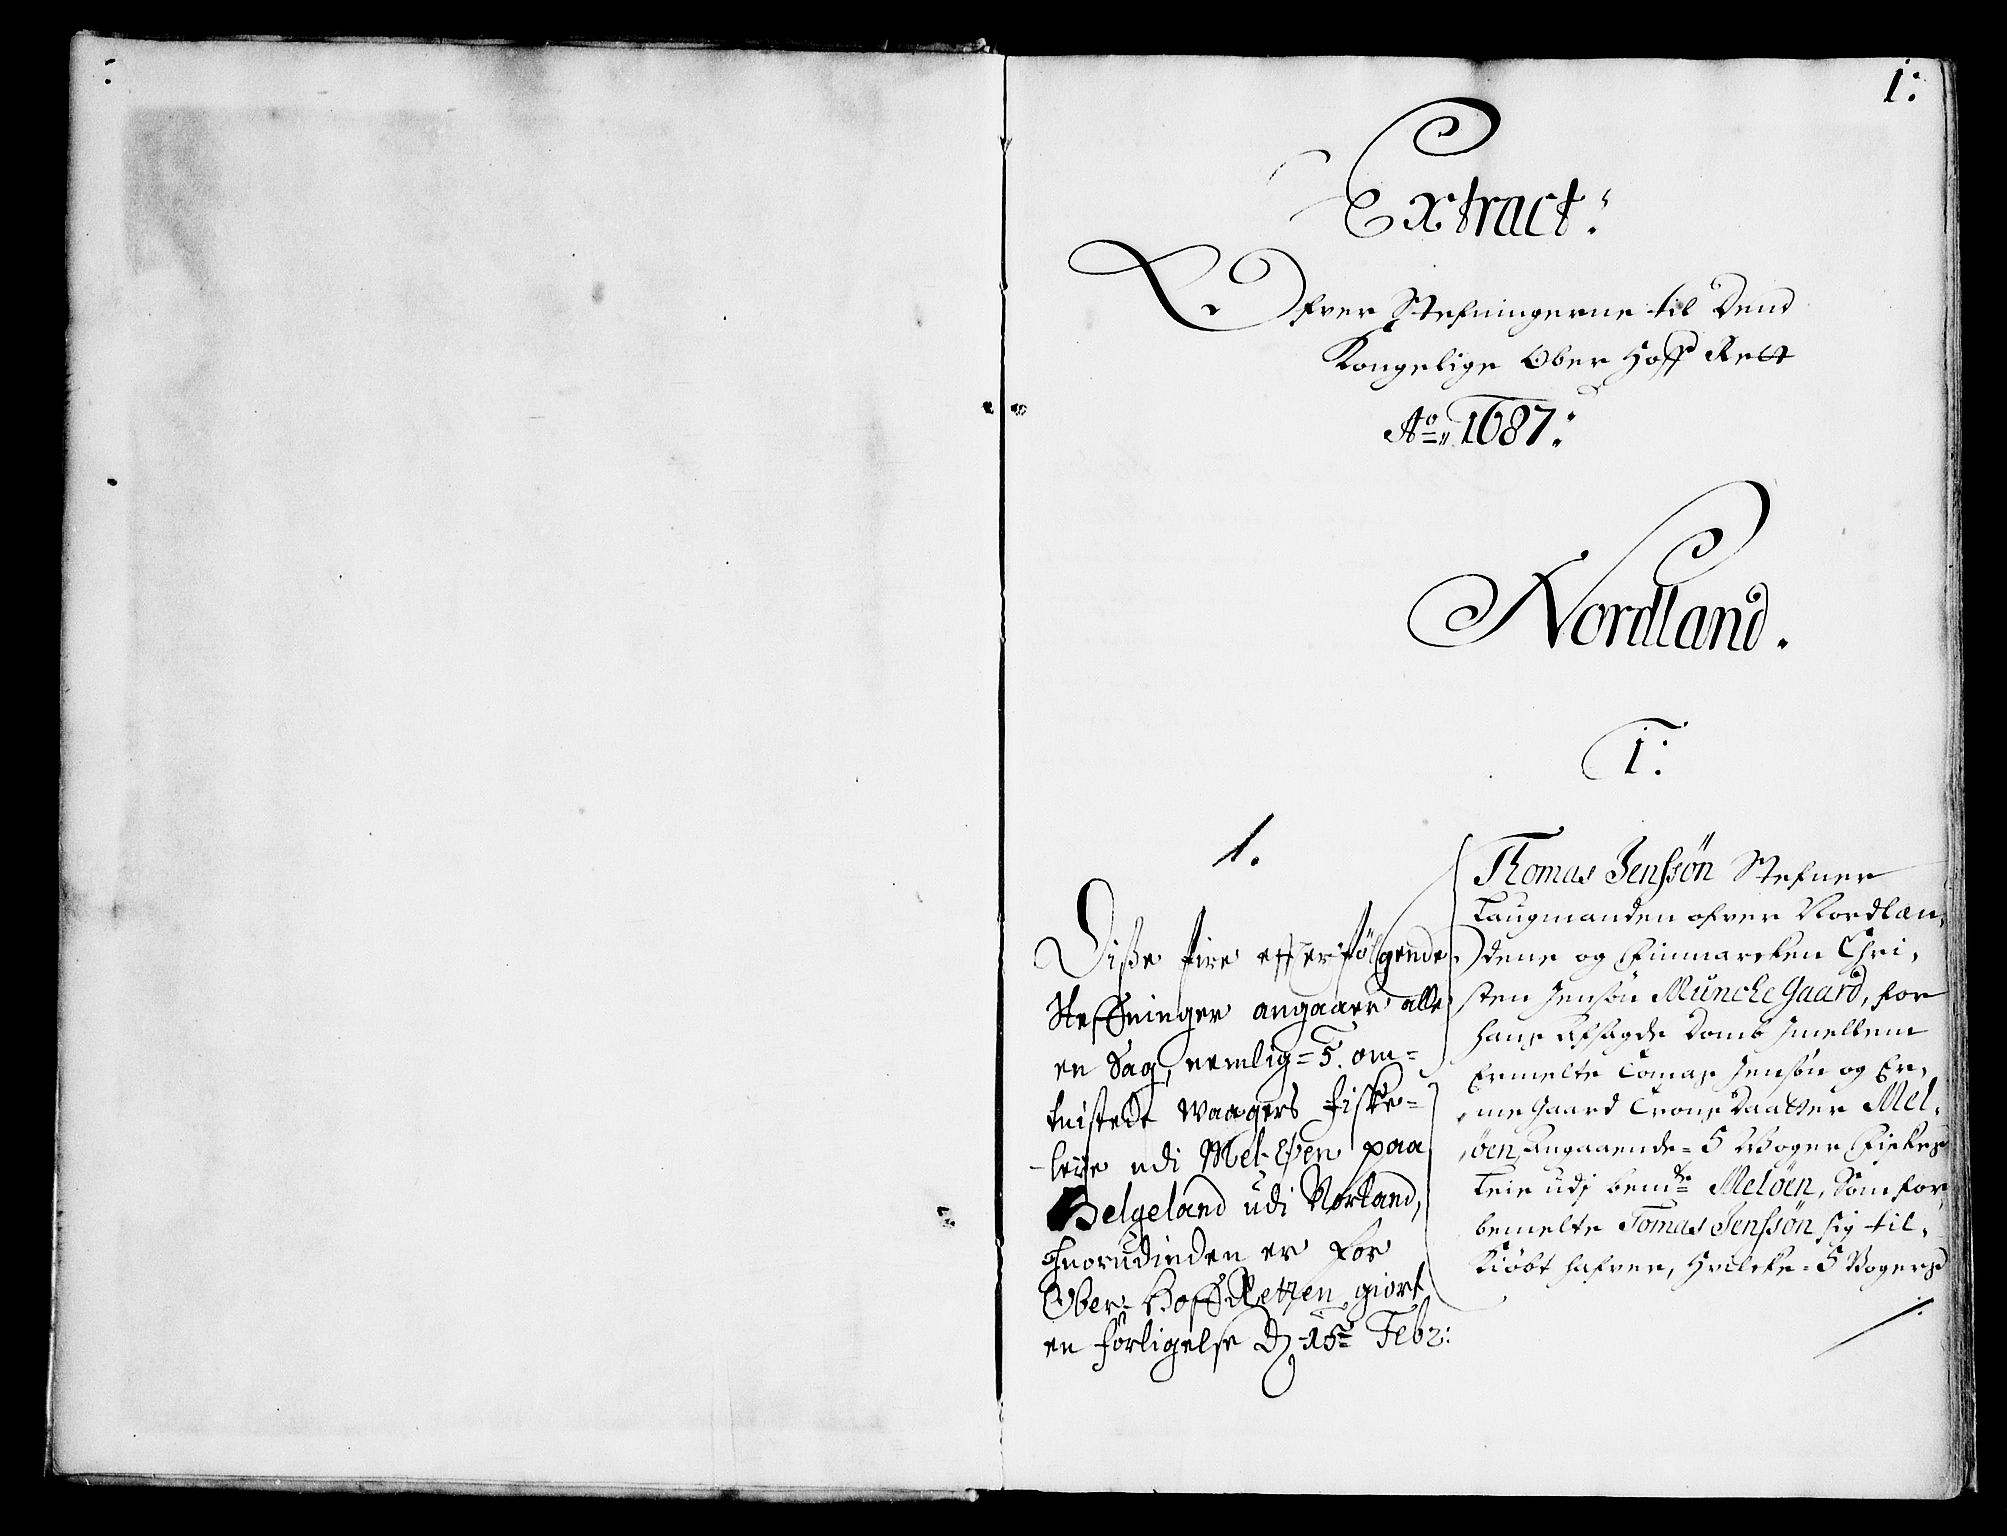 1:
Extract:
Ofver Stefningerne til Dend
Kongelige Ober Hoff Rett
Ao 1687:
Nordland.
1:
1.
Disse fire efterfølgende
Steffninger angaaer alle
en Sag, nemlig 5. om-
tuistede Waagers fiske-
leye udi Mel-Øen paa
Helgeland udi Norland,
Huorudinden er for
Ober-Hoff Retten giort
en forligelse d. 15de Febr:
Thomas Jenssøn Stefner
Laugmanden ofver Nordlan-
dene og Finmarcken Chri-
sten Jensøn Munche Gaard, for
hans afsagde Domb imellem
bemelte Tomas Jensøn og Er-
megaard Trons Daatter Mel-
øen, Angaaende 5 Woger Fiskes
Leie udj bemte Meløen, Som for
bemelte Tomas Jenssøn sig til-
Kiøbt hafver, Hvilcke 5 Vogers